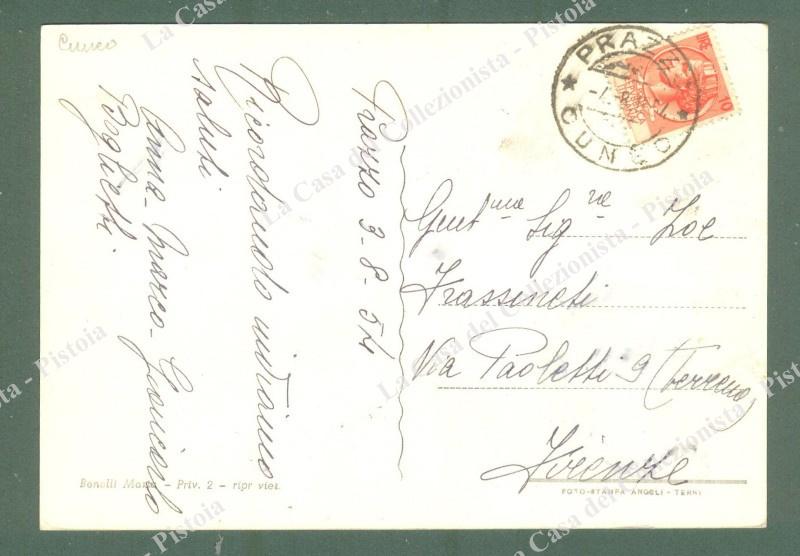 Cuneo
Prazzo 9-8-54
Ricordandola inviamo
saluti
Anna - Marco - Giancarlo
PRAZZO
CUNEO
LIRE 10
Gent.me Sig.ne Zoe
Frassineti
Via Paoletti 9 (terreno)
Firenze
Bonelli - Priv. 2 - ripr viet.
FOTO-STAMPA ANGELI - TERNI
La Casa del Collezionista - Pistoia